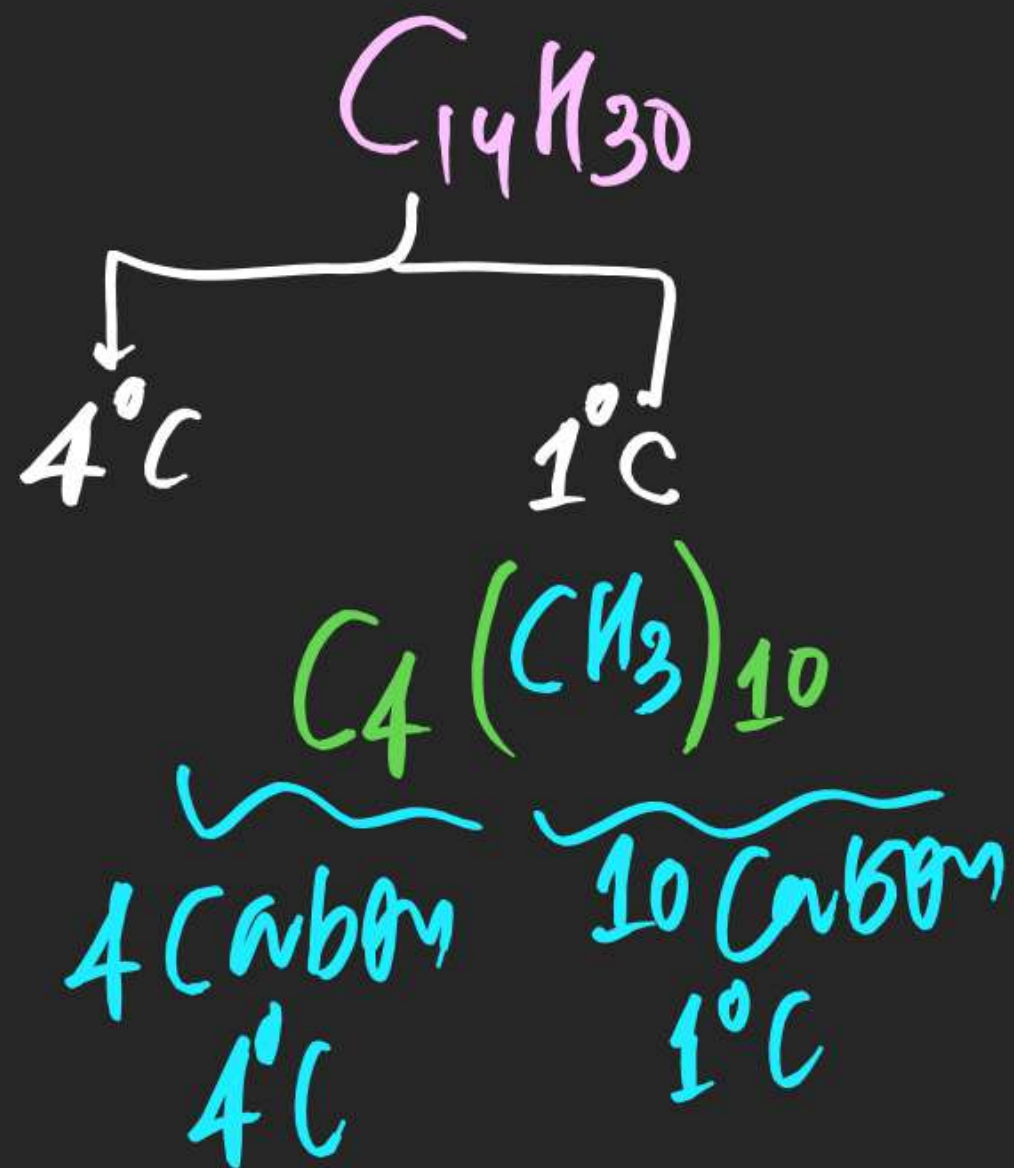 C₁₄H₃₀
4°C 1°C
C₄(CH₃)₁₀
4 Carbon 10 Carbon
4°C 1°C